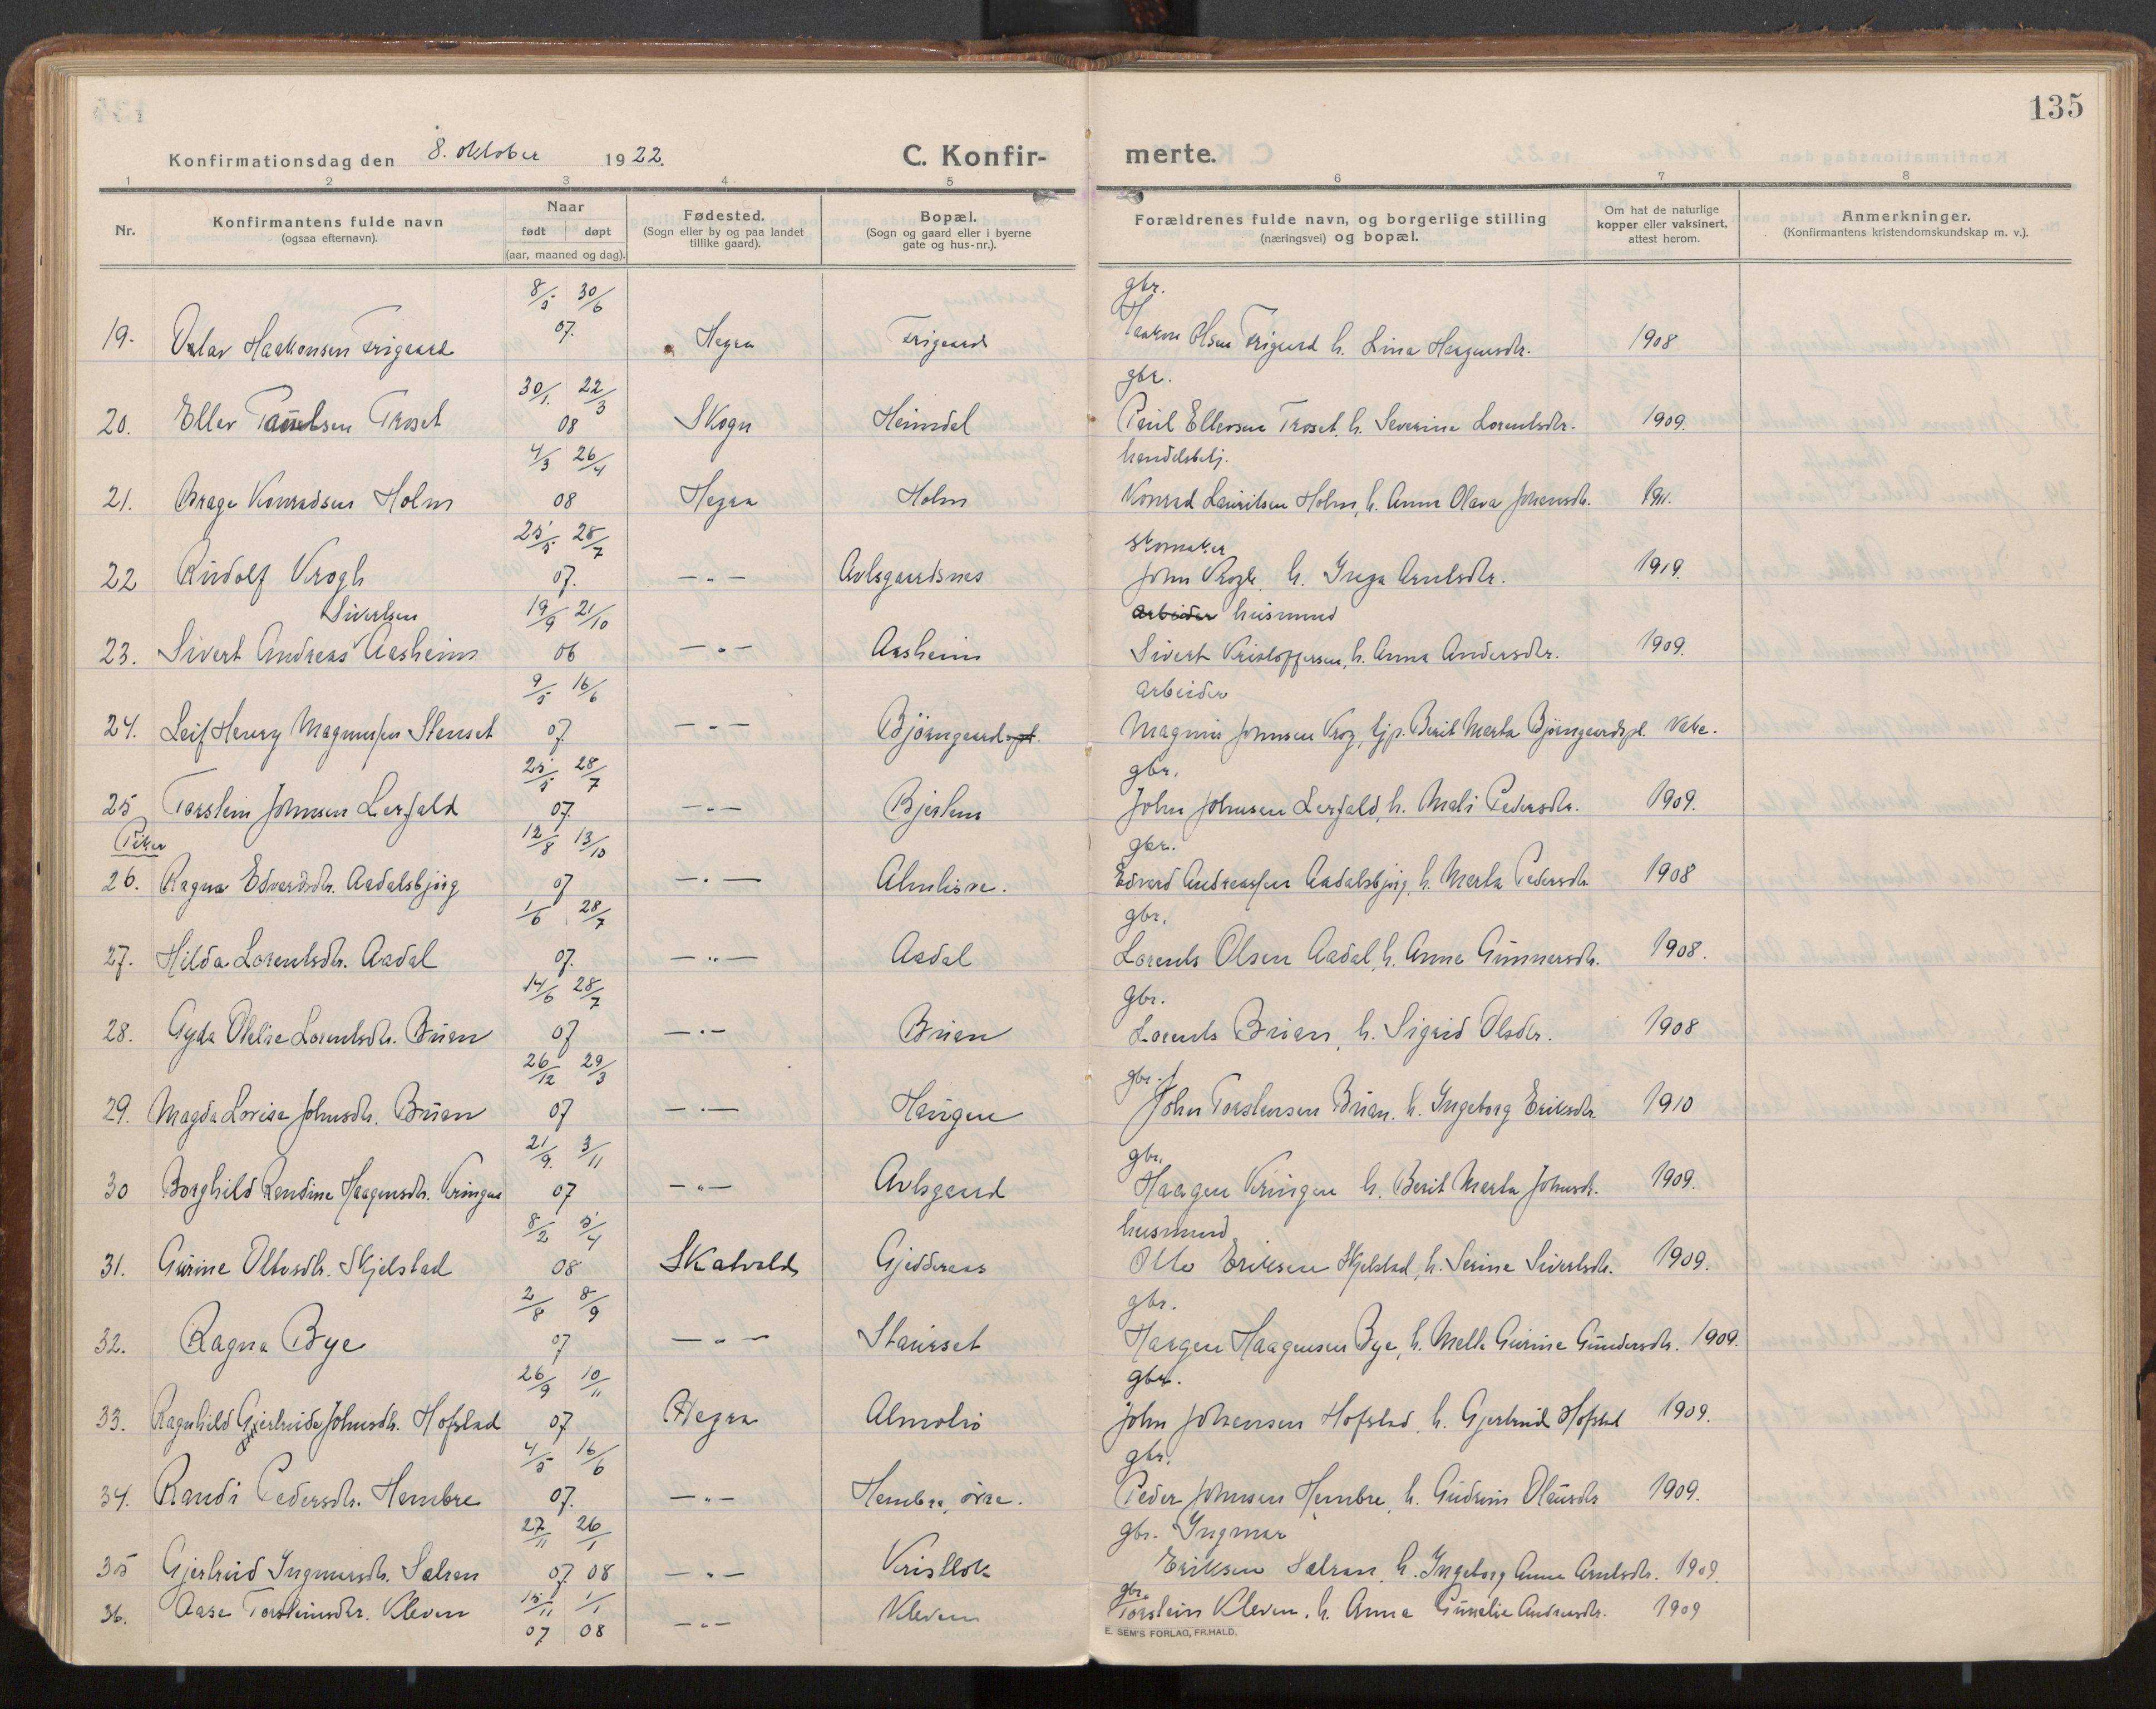 135
Konfirmationsdag den 8. oktober 1922.
C. Konfir-merte.
1 2 3 4 5 6 7 8
Nr. Konfirmantens fulde navn (ogsaa efternavn). Naar født døpt (aar, maaned og dag). Fødested. (Sogn eller by og paa landet tillike gaard). Bopæl. (Sogn og gaard eller i byerne gate og hus-nr.). Forældrenes fulde navn, og borgerlige stilling (næringsvei) og bopæl. Om hat de naturlige kopper eller vaksinert, attest herom. Anmerkninger. (Konfirmantens kristendomskundskap m. v.).
8/5 30/6 gbr.
19. Haakonsen Trigaard 07. Hegra Trigaard Haakon Olsen Trigaard h. Lina Haagensdtr. 1908
30/1. 22/3 gbr.
20. Eller Paulsen Troset 08 Skogn Heimdal Paul Ellevsen Troset, h. Severine Lorentsdtr. 1909.
4/3 26/4 handelsbetj.
21. Brage Konradsen Holm 08 Hegra Holm Konrad Lauritsen Holm, h. Anna Olava Johansdtr. 1911.
25/5 28/7 skomaker
22 Rudolf Krogh 07. —„— Avlsgaardsnes John Krogh h. Inga Arntsdtr. 1919.
Sivertsen 19/9 21/10 arbeider husmand
23. Sivert Andreas Aasheim 06 —„— Aasheim Sivert Kristoffersen, h. Anna Andersdtr. 1909.
9/5 16/6 arbeider
24. Leif Henry Magnussen Stenset 07. —„— Bjørngaard spl. Magnus Johnsen Krog, Ejp. Berit Marta Bjørngaardspl. Vake.
25/5 28/7 gbr.
25 Torstein Johnsen Lerfald 07. —„— Bjerken John Johnsen Lerfald, h. Mali Pedersdtr. 1909.
Piker 12/8 13/10 gbr.
26. Ragna Edvardsdtr. Aadalsbjørg 07 —„— Almlisve. Edvard Andreassen Aadalsbjørg, h. Marta Pedersdtr 1908
1/6 28/7 gbr.
27. Hilda Lorentsdtr. Aadal 07. —„— Aadal Lorents Olsen Aadal, h. Anne Gunnarsdtr. 1908.
14/6 28/7 gbr.
28. Gyda Otelie Lorentsdtr. Bruan 07 —„— Bruan Lorents Bruan, h. Sigrid Olsdtr. 1908
26/12 29/3 gbr.
29. Magda Lovisa Johnsdtr. Bruan 07 —„— Haugen John Torstensen Bruan. h. Ingeborg Eriksdtr 1910
21/9. 3/11 gbr.
30 Borghild Randine Haagensdtr. Kringen 07 —„— Avlsgaard Haagen Kringen h. Berit Marta Johnsdtr. 1909.
8/2 5/4 husmand
31. Gurine Ottosdtr. Skjelstad 08 Skatvold Gjeddeaas Otto Eriksen Skjelstad, h. Serine Sivertsdtr. 1909.
2/8 8/9 gbr.
32. Ragna Bye 07 —„— Staurset Haagen Haagensen Bye, h. Mette Gurine Gundersdtr. 1909.
26/9 10/11 gbr.
33. Ragnhild Gjertruida Johnsdtr. Hofstad 07 Hegra Almoli John Johansen Hofstad, h. Gjertrud Hofstad 1909.
4/5 16/6 gbr.
34. Randi Pedersdtr. Hembre 07. —„— Hembre, øvre. Peder Johnsen Hembre, h. Gudrun Olausdtr 1909.
27/11 26/1 gbr. Ingmar
35 Gjertrud Ingmarsdtr. Salran 07. 08 —„— Kristlok Eriksen Salran, h. Ingeborg Anna Arntsdtr. 1909.
15/11 1/1 gbr.
36. Aase Torsteinsdtr. Kleven 07 08 —„— Kleven Torstein Kleven, h. Anna Gunelie Andreasdtr. 1909
E. SEM'S FORLAG, FR.HALD.